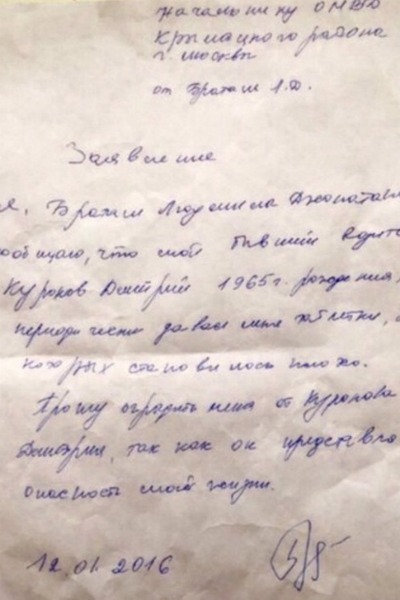 Начальнику ОМВД
Крылацкого района
г. Москвы
от Браташ Л.Д.
Заявление
Я, Браташ Людмила Джонатан
сообщаю, что мой бывший водит
Куронов Дмитрий 1965 г. рождения,
периодически давал мне таблетки, о
которых становилось плохо.
Прошу оградить меня от Куронова
Дмитрия, так как он представля
опасность моей жизни.
12.01.2016